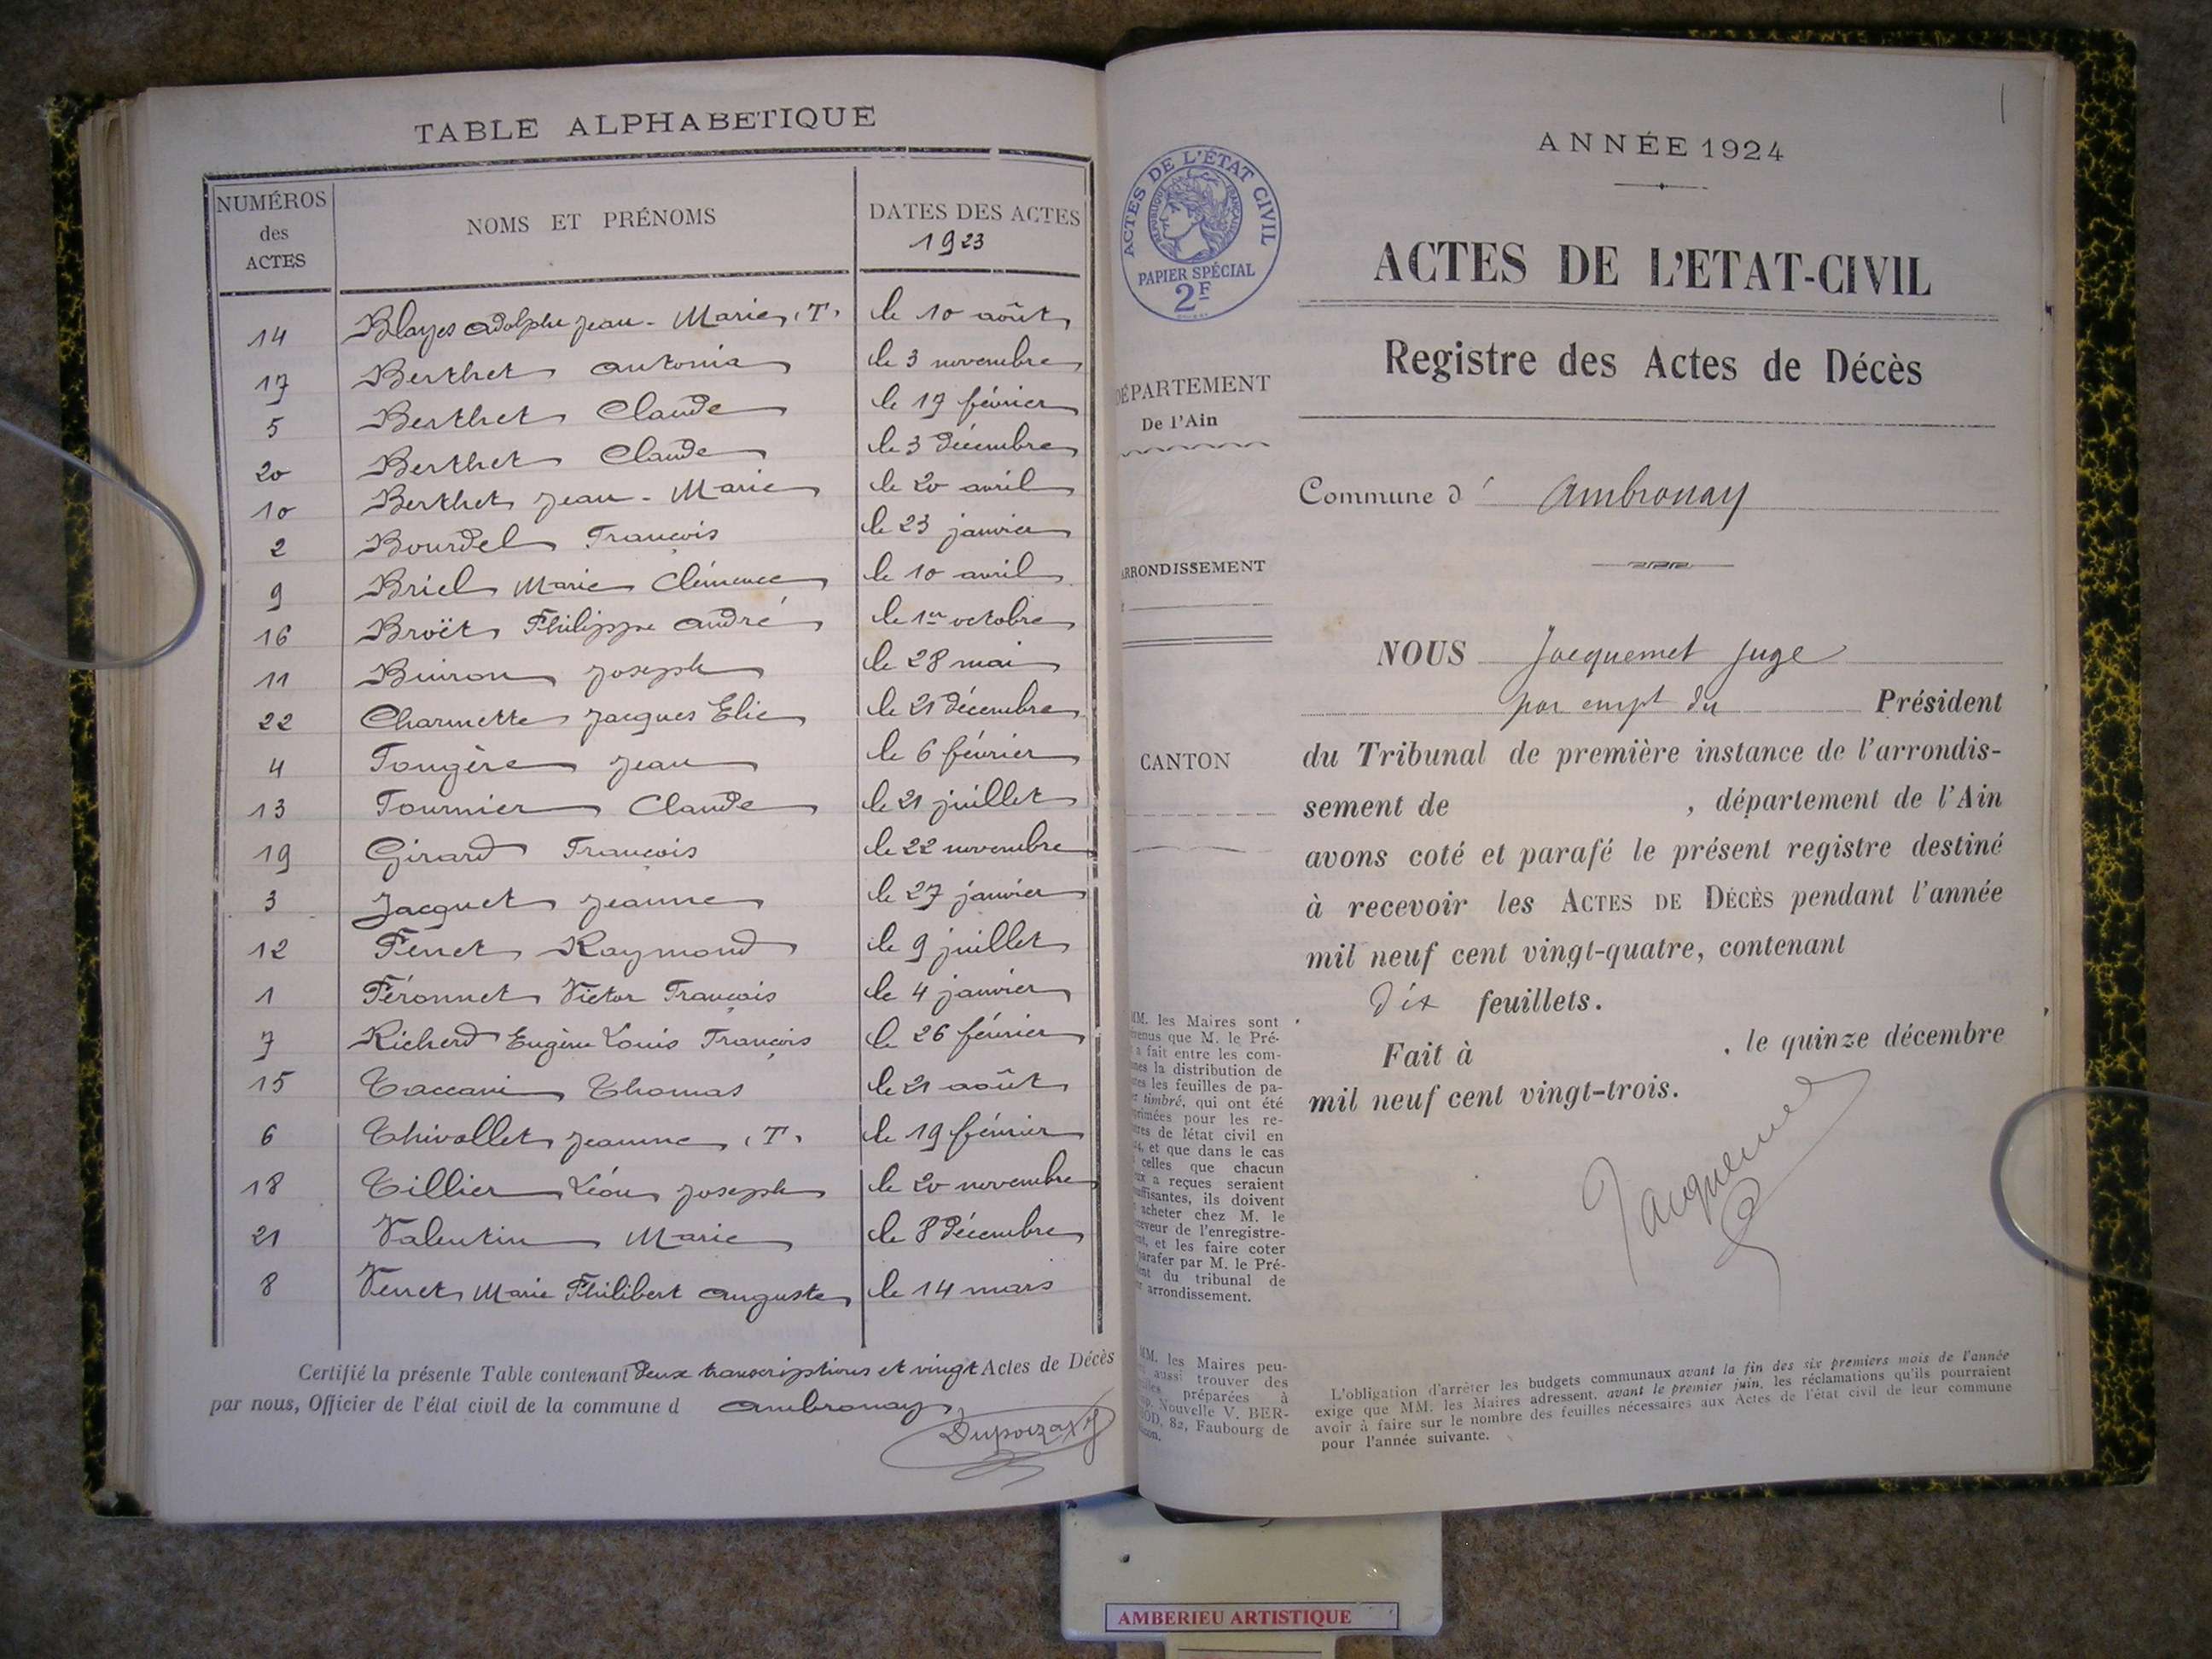 TABLE ALPHABETIQUE
NUMÉROS des ACTES
NOMS ET PRÉNOMS
DATES DES ACTES
1923
14 Blayes Adolphe Jean-Marie (T) le 10 août
17 Berthet Antonia le 3 novembre
5 Berthet Claude le 17 février
20 Berthet Claude le 3 décembre
10 Berthet Jean-Marie le 20 avril
2 Bourdel François le 23 janvier
9 Briel Marie Clémence le 10 avril
16 Broët Philippe André le 1er octobre
11 Buiron Joseph le 28 mai
22 Charmette Jacques Elie le 21 décembre
4 Fougère Jean le 6 février
13 Fournier Claude le 21 juillet
19 Girard François le 22 novembre
3 Jacquet Jeanne le 27 janvier
12 Perret Raymond le 9 juillet
1 Péronnet Victor François le 4 janvier
7 Richerd Eugène Louis François le 26 février
15 Taccani Thomas le 21 août
6 Thivollet Jeanne (T) le 19 février
18 Tillier Léon Joseph le 20 novembre
21 Valentin Marie le 8 décembre
8 Verret Marie Philibert Auguste le 14 mars
Certifié la présente Table contenant deux transcriptions et vingt Actes de Décès
par nous, Officier de l'état civil de la commune d Ambronay
Dupoizat
ACTES DE L'ÉTAT CIVIL
RÉPUBLIQUE FRANÇAISE
PAPIER SPÉCIAL
2F
DÉPARTEMENT
De l'Ain
ARRONDISSEMENT
CANTON
MM. les Maires sont
venus que M. le Pré-
a fait entre les com-
la distribution de
les feuilles de pa-
timbré, qui ont été
primées pour les re-
de létat civil en
et que dans le cas
celles que chacun
a reçues seraient
ils doivent
acheter chez M. le
de l'enregistre-
et les faire coter
parafer par M. le Pré-
du tribunal de
arrondissement.
MM. les Maires peu-
aussi trouver des
préparées à
Nouvelle V. BER-
82, Faubourg de
ANNÉE 1924
ACTES DE L'ETAT-CIVIL
Registre des Actes de Décès
Commune d' Ambronay
NOUS Jacquemet Juge
par empt du Président
du Tribunal de première instance de l'arrondis-
sement de , département de l'Ain
avons coté et parafé le présent registre destiné
à recevoir les ACTES DE DÉCÈS pendant l'année
mil neuf cent vingt-quatre, contenant
Dix feuillets.
Fait à , le quinze décembre
mil neuf cent vingt-trois.
Jacquemet
L'obligation d'arrêter les budgets communaux avant la fin des six premiers mois de l'année
exige que MM. les Maires adressent, avant le premier juin, les réclamations qu'ils pourraient
avoir à faire sur le nombre des feuilles nécessaires aux Actes de l'état civil de leur commune
pour l'année suivante.
AMBERIEU ARTISTIQUE